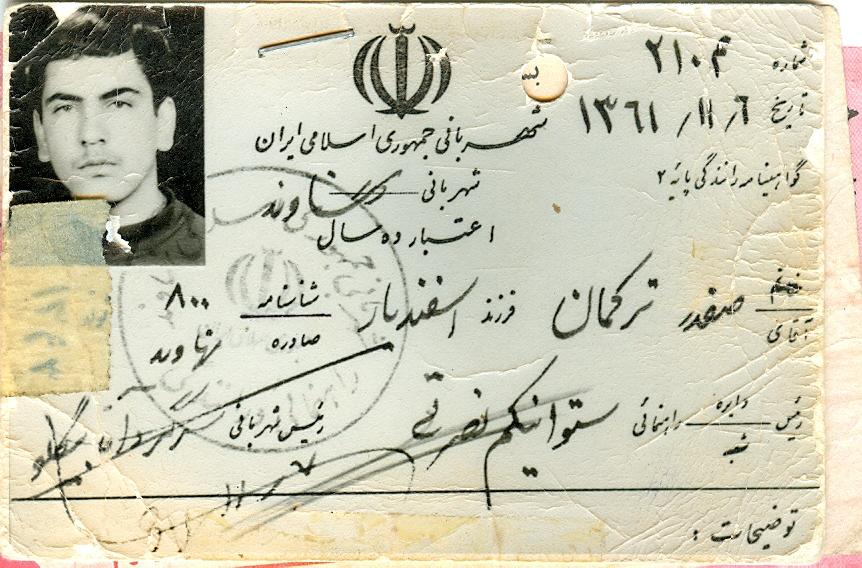 شماره ۲۱۰۳
تاریخ ۱۳۶۱/۱۱/۶
شهربانی جمهوری اسلامی ایران
گواهینامه رانندگی پایه ۲
شهربانی نهاوند
اعتبار ده سال
خانم
آقای صفدر ترکمان فرزند اسفندیار شناسنامه ۸۰۰
صادره نهاوند
رئیس دایره راهنمائی ستوانیکم نصرتی رئیس شهربانی
شعبه
توضیحات :